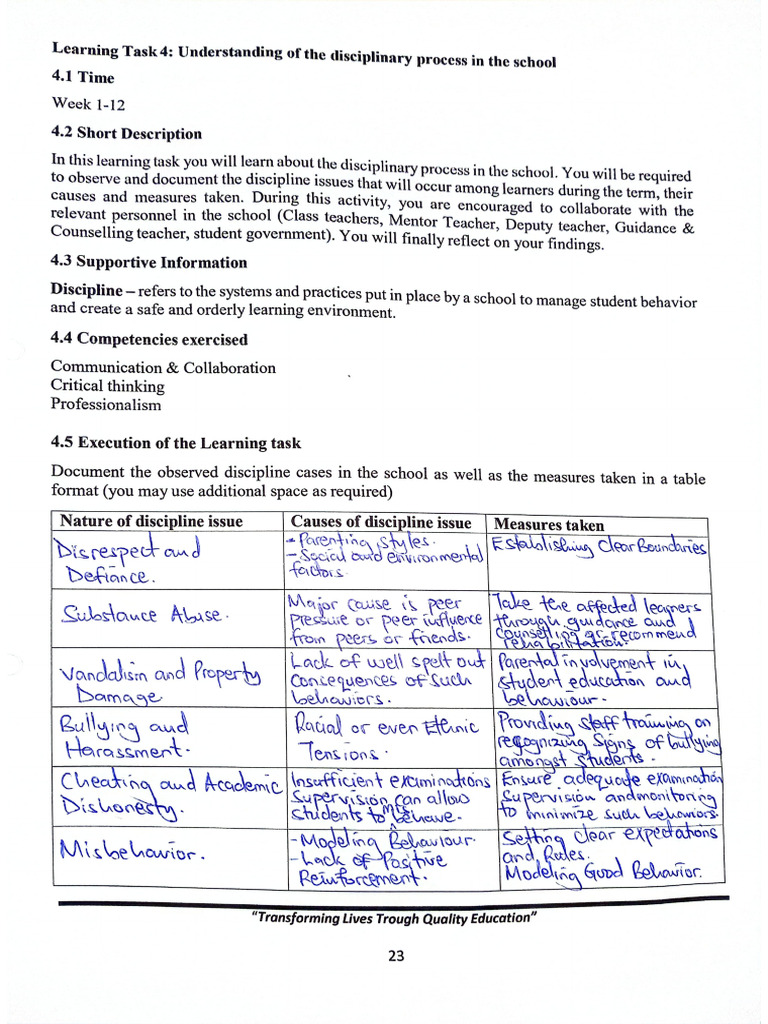 Learning Task 4: Understanding of the disciplinary process in the school
4.1 Time
Week 1-12
4.2 Short Description
In this learning task you will learn about the disciplinary process in the school. You will be required
to observe and document the discipline issues that will occur among learners during the term, their
causes and measures taken. During this activity, you are encouraged to collaborate with the
relevant personnel in the school (Class teachers, Mentor Teacher, Deputy teacher, Guidance &
Counselling teacher, student government). You will finally reflect on your findings.
4.3 Supportive Information
Discipline – refers to the systems and practices put in place by a school to manage student behavior
and create a safe and orderly learning environment.
4.4 Competencies exercised
Communication & Collaboration
Critical thinking
Professionalism
4.5 Execution of the Learning task
Document the observed discipline cases in the school as well as the measures taken in a table
format (you may use additional space as required)
Nature of discipline issue
Causes of discipline issue
Measures taken
Disrespect and
Defiance.
- Parenting Styles.
- Social and environmental
factors.
Establishing Clear Boundaries
Substance Abuse.
Major cause is peer
pressure or peer influence
from peers or friends.
Take the affected learners
through guidance and
counselling or recommend
rehabilitation.
Vandalism and Property
Damage
Lack of well spelt out
Consequences of Such
behaviors.
Parental involvement in
student education and
behaviour.
Bullying and
Harassment.
Racial or even Ethnic
Tensions.
Providing staff training on
recognizing signs of bullying
amongst students.
Cheating and Academic
Dishonesty.
Insufficient examinations
Supervision can allow
students to mis behave.
Ensure adequate examination
Supervision and monitoring
to minimize such behaviors.
Misbehavior.
- Modeling Behaviour.
- Lack of Positive
Reinforcement.
Setting clear expectations
and Rules.
Modeling Good Behavior.
"Transforming Lives Trough Quality Education"
23